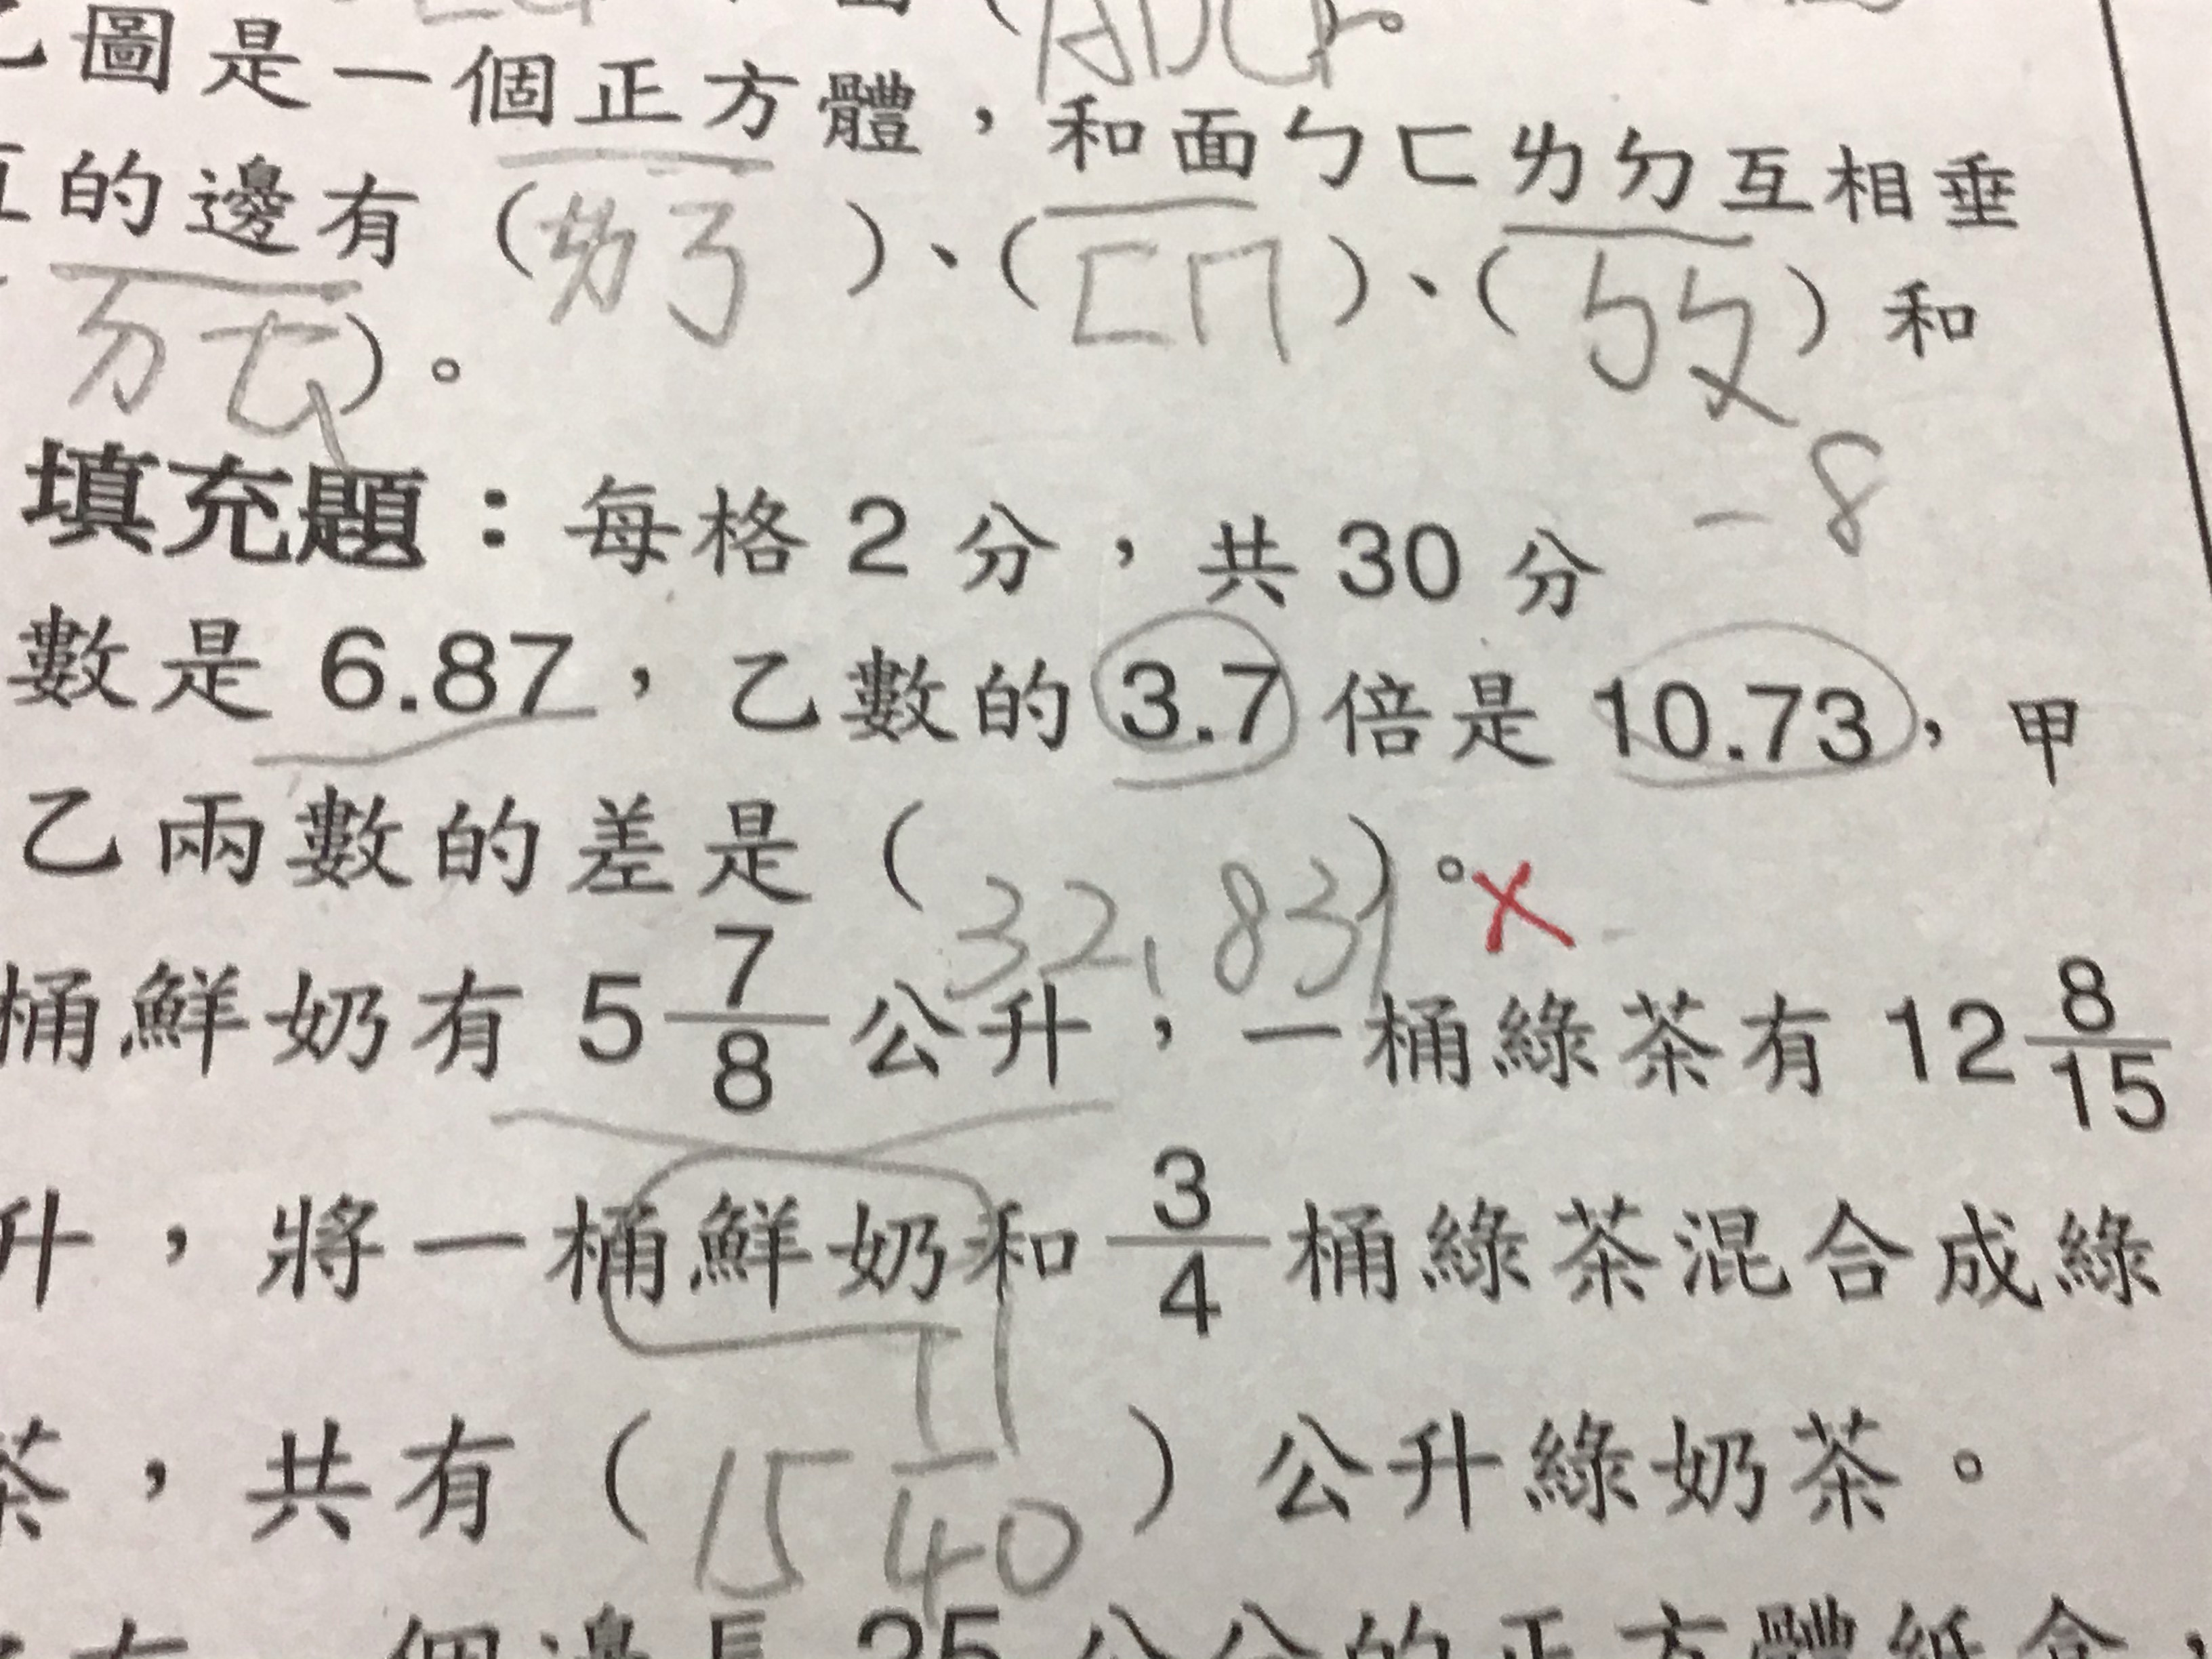 (ADCF)。
乙圖是一個正方體，和面ㄅㄈㄌㄉ互相垂
直的邊有(ㄌㄋ)、(ㄈㄇ)、(ㄅㄆ)和
ㄉㄊ)。
填充題：每格2分，共30分 -8
數是6.87，乙數的3.7倍是10.73，甲
乙兩數的差是(32.831)。×
桶鮮奶有5 7/8公升，一桶綠茶有12 8/15
升，將一桶鮮奶和3/4桶綠茶混合成綠
茶，共有(15 11/40)公升綠奶茶。
個邊長25公分的正方體紙盒，